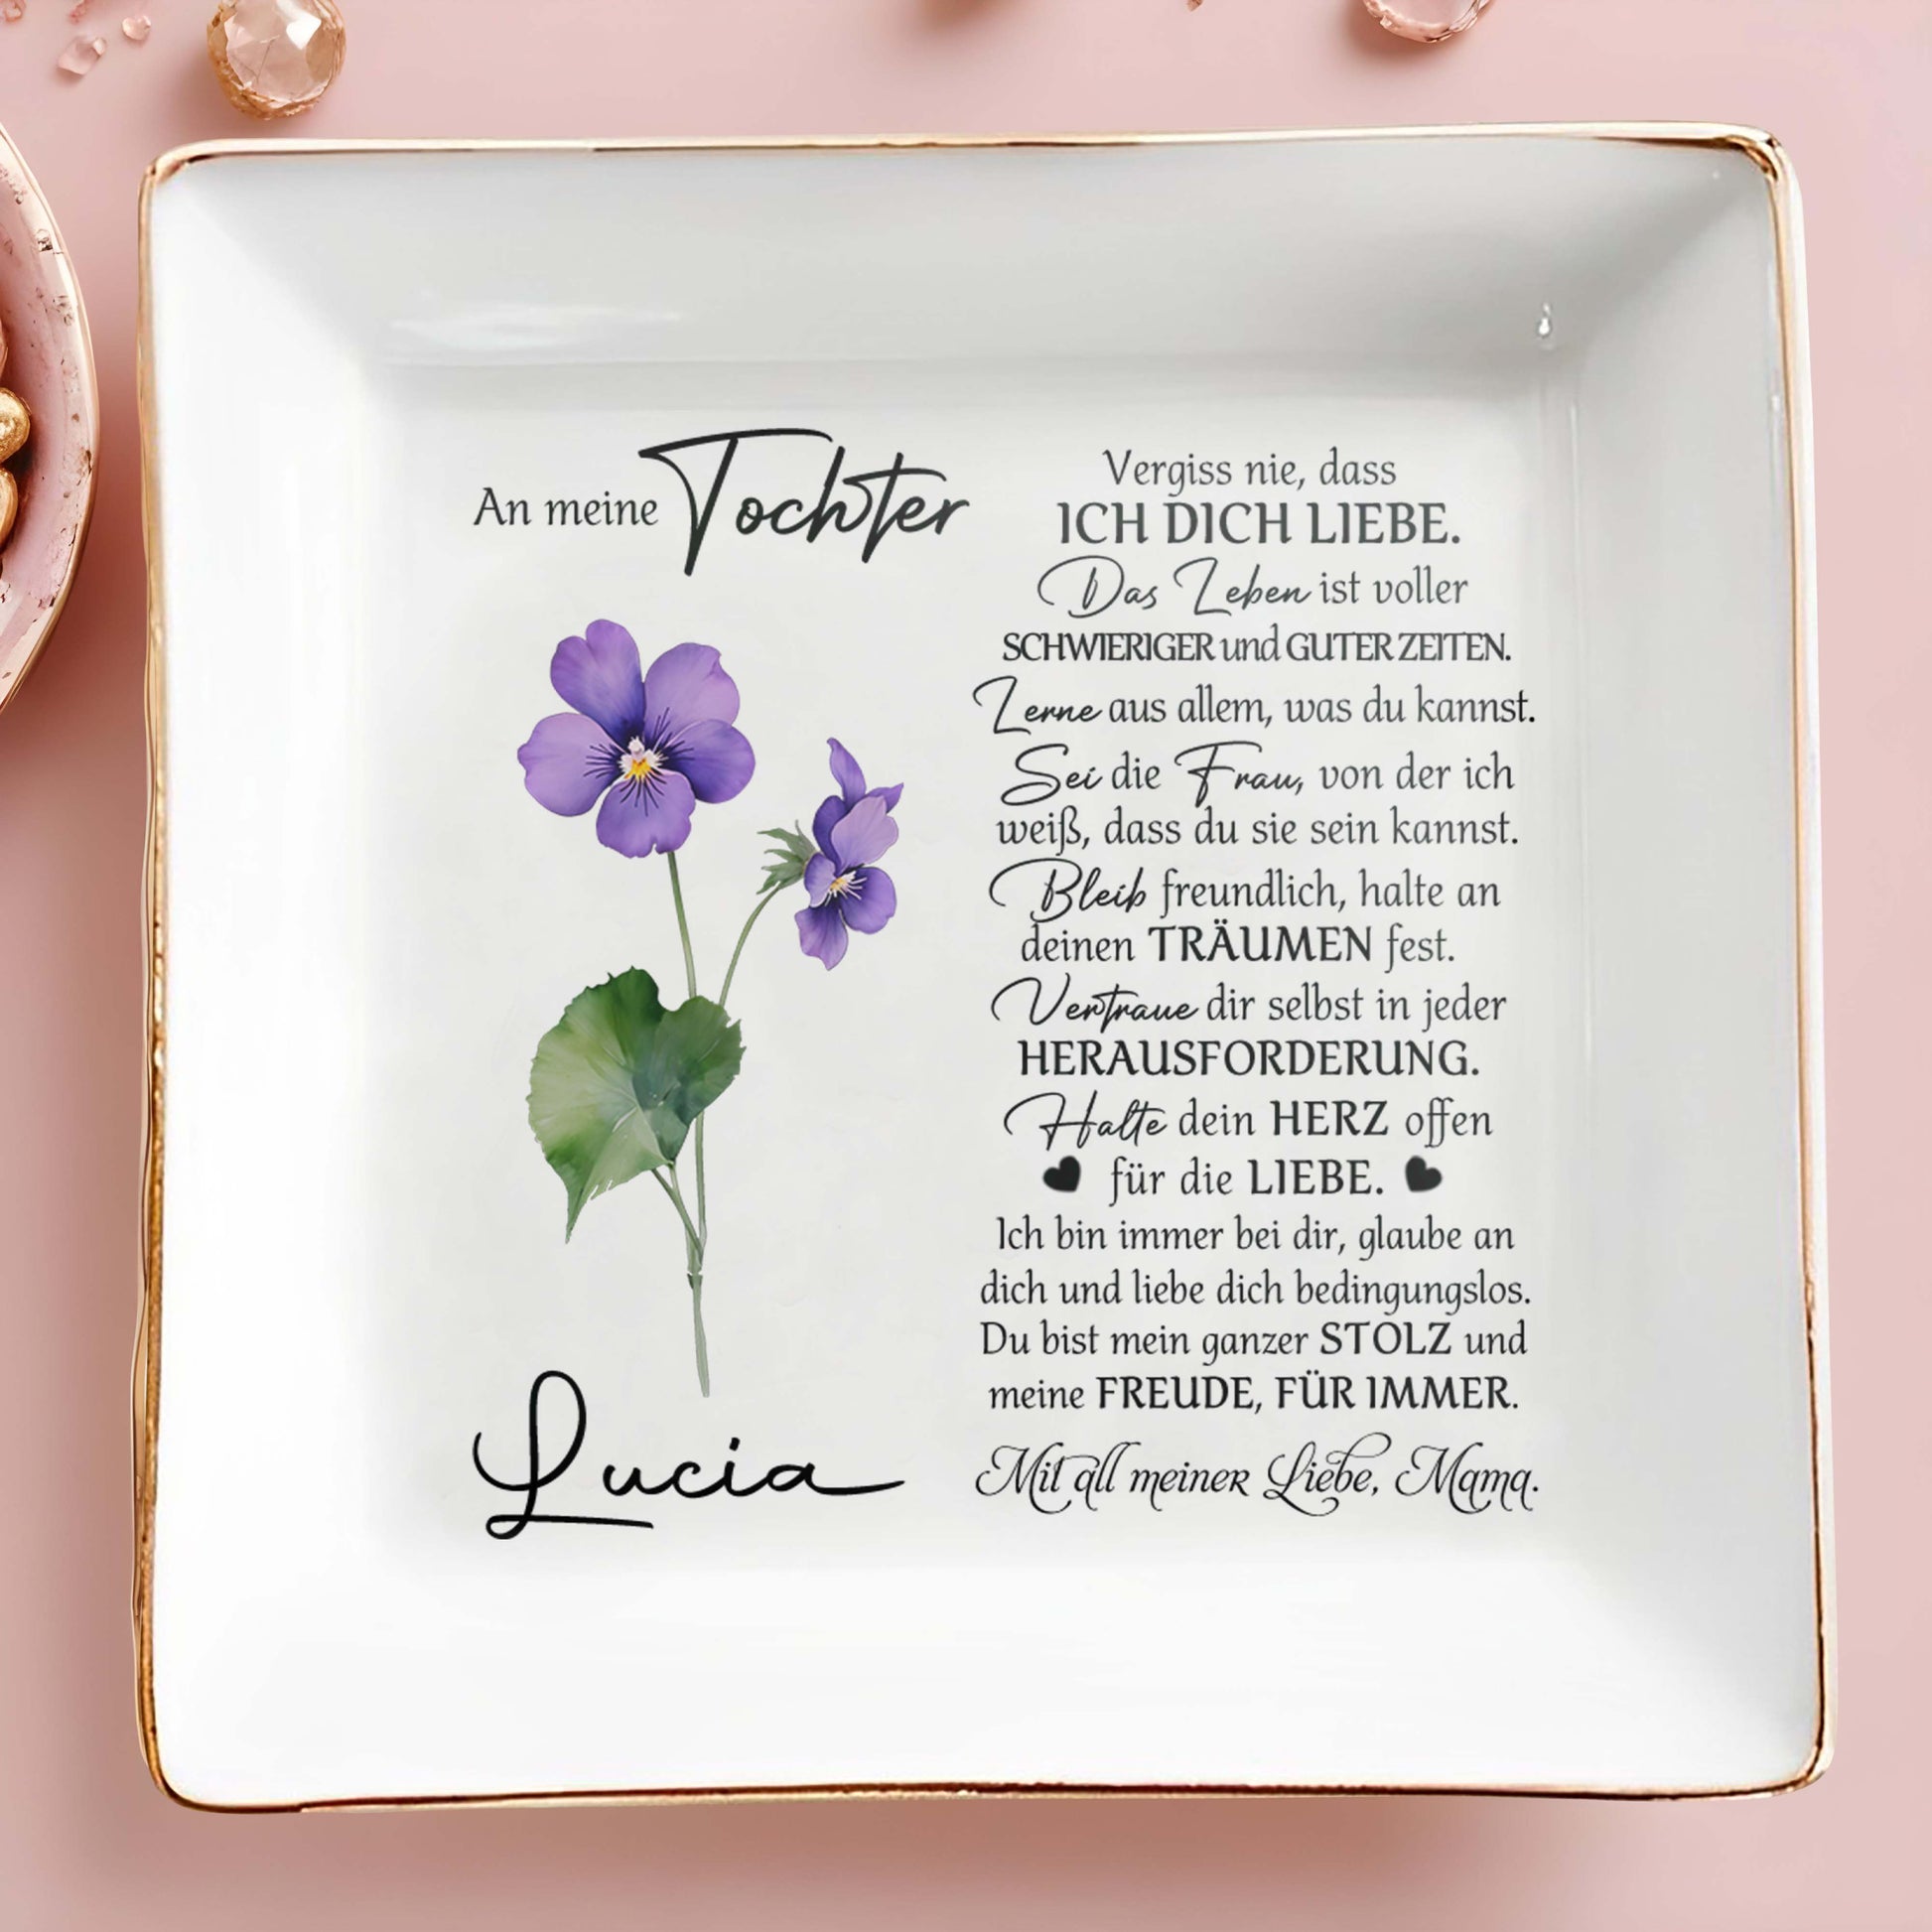 An meine Tochter
Lucia
Vergiss nie, dass
ICH DICH LIEBE.
Das Leben ist voller
SCHWIERIGER und GUTER ZEITEN.
Lerne aus allem, was du kannst.
Sei die Frau, von der ich
weiß, dass du sie sein kannst.
Bleib freundlich, halte an
deinen TRÄUMEN fest.
Vertraue dir selbst in jeder
HERAUSFORDERUNG.
Halte dein HERZ offen
für die LIEBE.
Ich bin immer bei dir, glaube an
dich und liebe dich bedingungslos.
Du bist mein ganzer STOLZ und
meine FREUDE, FÜR IMMER.
Mit all meiner Liebe, Mama.